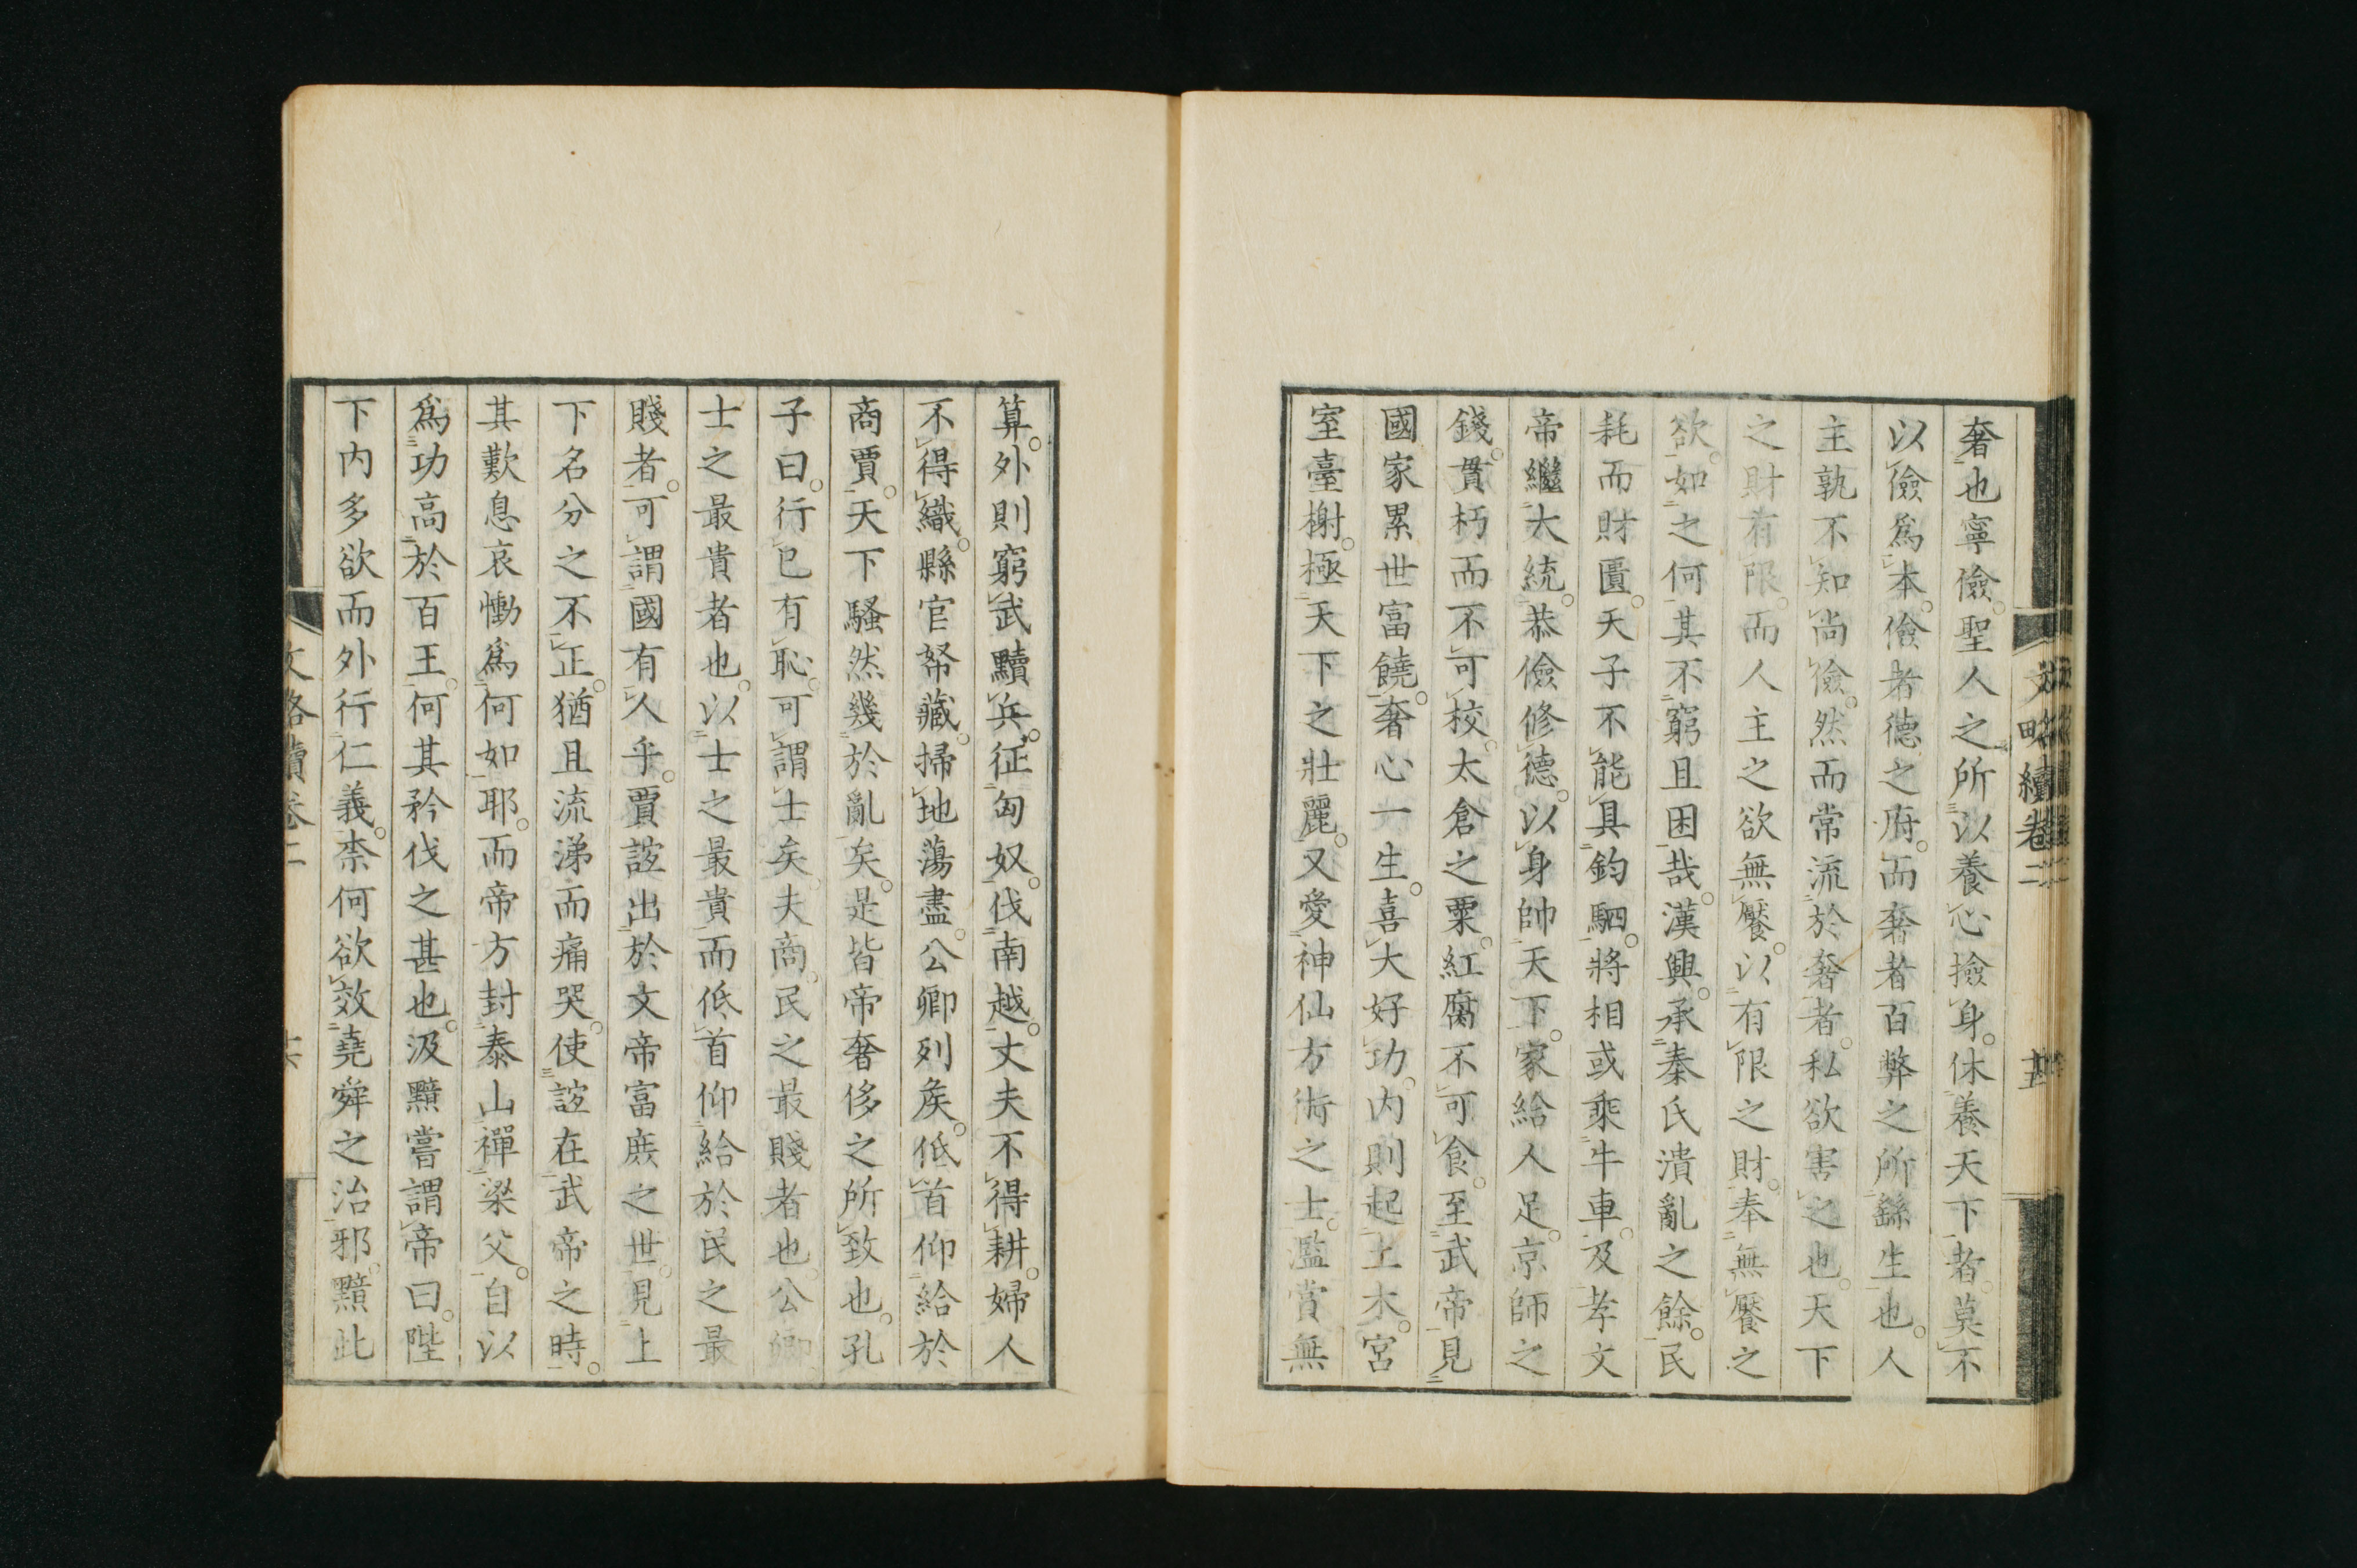 奢也寧儉。聖人之所以養心撿身。休養天下者。莫不
以儉爲本。儉者德之府。而奢者百弊之所繇生也。人
主孰不知尚儉。然而常流於奢者。私欲害之也。天下
之財有限。而人主之欲無饜。以有限之財。奉無饜之
欲。如之何其不窮且困哉。漢興。承秦氏潰亂之餘。民
耗而財匱。天子不能具鈞駟。將相或乘牛車。及孝文
帝繼大統。恭儉修德。以身帥天下。家給人足。京師之
錢。貫朽而不可校。太倉之粟。紅腐不可食。至武帝見
國家累世富饒。奢心一生。喜大好功。內則起土木。宮
室臺榭。極天下之壯麗。又愛神仙方術之士。濫賞無
文略續卷二
算。外則窮武黷兵。征匈奴。伐南越。丈夫不得耕。婦人
不得織。縣官帑藏。掃地蕩盡。公卿列矦。低首仰給於
商賈。天下騷然幾於亂矣。是皆帝奢侈之所致也。孔
子曰。行已有恥。可謂士矣。夫商。民之最賤者也。公卿
士之最貴者也。以士之最貴。而低首仰給於民之最
賤者。可謂國有人乎。賈誼出於文帝富庶之世。見上
下名分之不正。猶且流涕而痛哭。使誼在武帝之時。
其歎息哀慟爲何如耶。而帝方封泰山禪梁父。自以
爲功高於百王。何其矜伐之甚也。汲黯嘗謂帝曰。陛
下內多欲而外行仁義。柰何欲效堯舜之治邪。黯此
文略續卷二